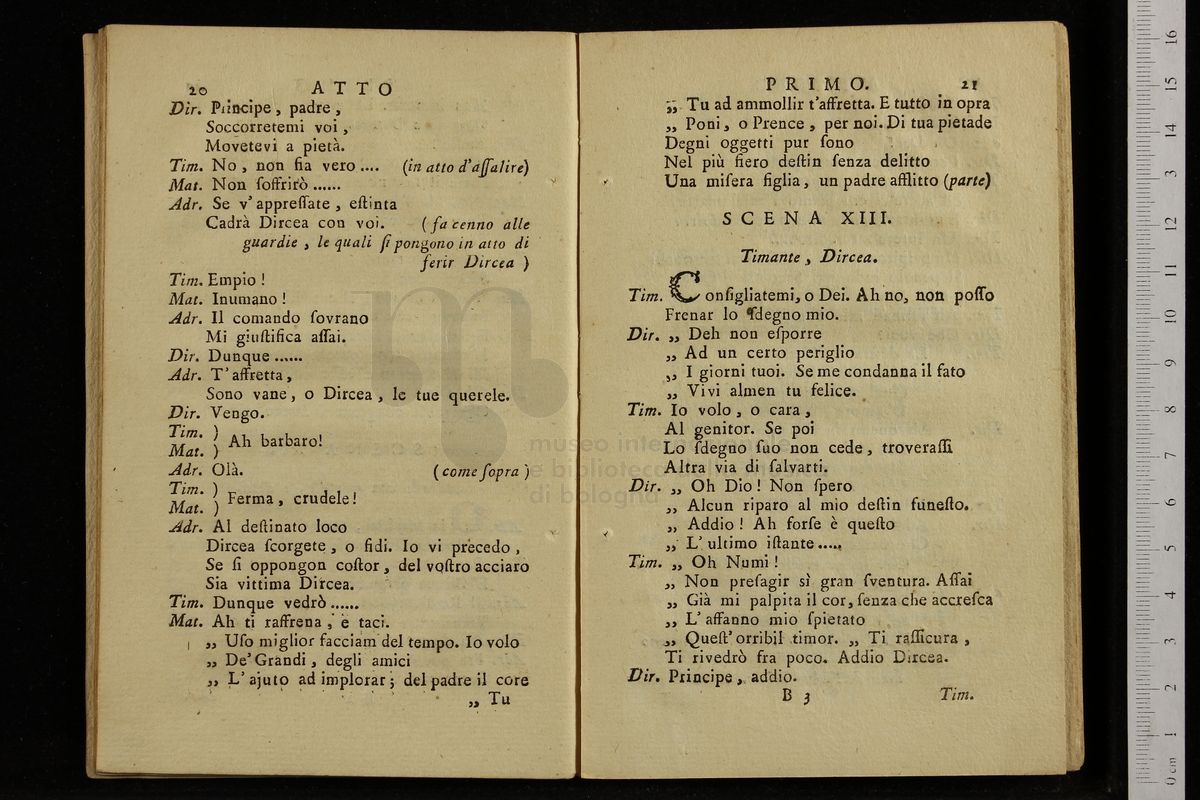 20 ATTO
Dir. Principe, padre,
Soccorretemi voi,
Movetevi a pietà.
Tim. No, non fia vero.... (in atto d'aſſalire)
Mat. Non ſoffrirò......
Adr. Se v'appreſſate, eſtinta
Cadrà Dircea con voi. (fa cenno alle
guardie, le quali ſi pongono in atto di
ferir Dircea)
Tim. Empio!
Mat. Inumano!
Adr. Il comando ſovrano
Mi giuſtifica aſſai.
Dir. Dunque......
Adr. T'affretta,
Sono vane, o Dircea, le tue querele.
Dir. Vengo.
Tim. )
Mat. ) Ah barbaro!
Adr. Olà. (come ſopra)
Tim. )
Mat. ) Ferma, crudele!
Adr. Al deſtinato loco
Dircea ſcorgete, o fidi. Io vi precedo,
Se ſi oppongon coſtor, del voſtro acciaro
Sia vittima Dircea.
Tim. Dunque vedrò......
Mat. Ah ti raffrena, e taci.
„ Uſo miglior facciam del tempo. Io volo
„ De'Grandi, degli amici
„ L'ajuto ad implorar; del padre il core
„ Tu
PRIMO. 21
„ Tu ad ammollir t'affretta. E tutto in opra
„ Poni, o Prence, per noi. Di tua pietade
Degni oggetti pur ſono
Nel più fiero deſtin ſenza delitto
Una miſera figlia, un padre afflitto (parte)
SCENA XIII.
Timante, Dircea.
Tim. Conſigliatemi, o Dei. Ah no, non poſſo
Frenar lo ſdegno mio.
Dir. „ Deh non eſporre
„ Ad un certo periglio
„ I giorni tuoi. Se me condanna il fato
„ Vivi almen tu felice.
Tim. Io volo, o cara,
Al genitor. Se poi
Lo ſdegno ſuo non cede, troveraſſi
Altra via di ſalvarti.
Dir. „ Oh Dio! Non ſpero
„ Alcun riparo al mio deſtin funeſto.
„ Addio! Ah forſe è queſto
„ L'ultimo iſtante.....
Tim. „ Oh Numi!
„ Non preſagir sì gran ſventura. Aſſai
„ Già mi palpita il cor, ſenza che accreſca
„ L'affanno mio ſpietato
„ Queſt'orribil timor. „ Ti raſſicura,
Ti rivedrò fra poco. Addio Dircea.
Dir. Principe, addio.
B 3 Tim.
museo internazionale
e biblioteca della musica
di bologna
0 cm 1 2 3 4 5 6 7 8 9 10 11 12 13 14 15 16